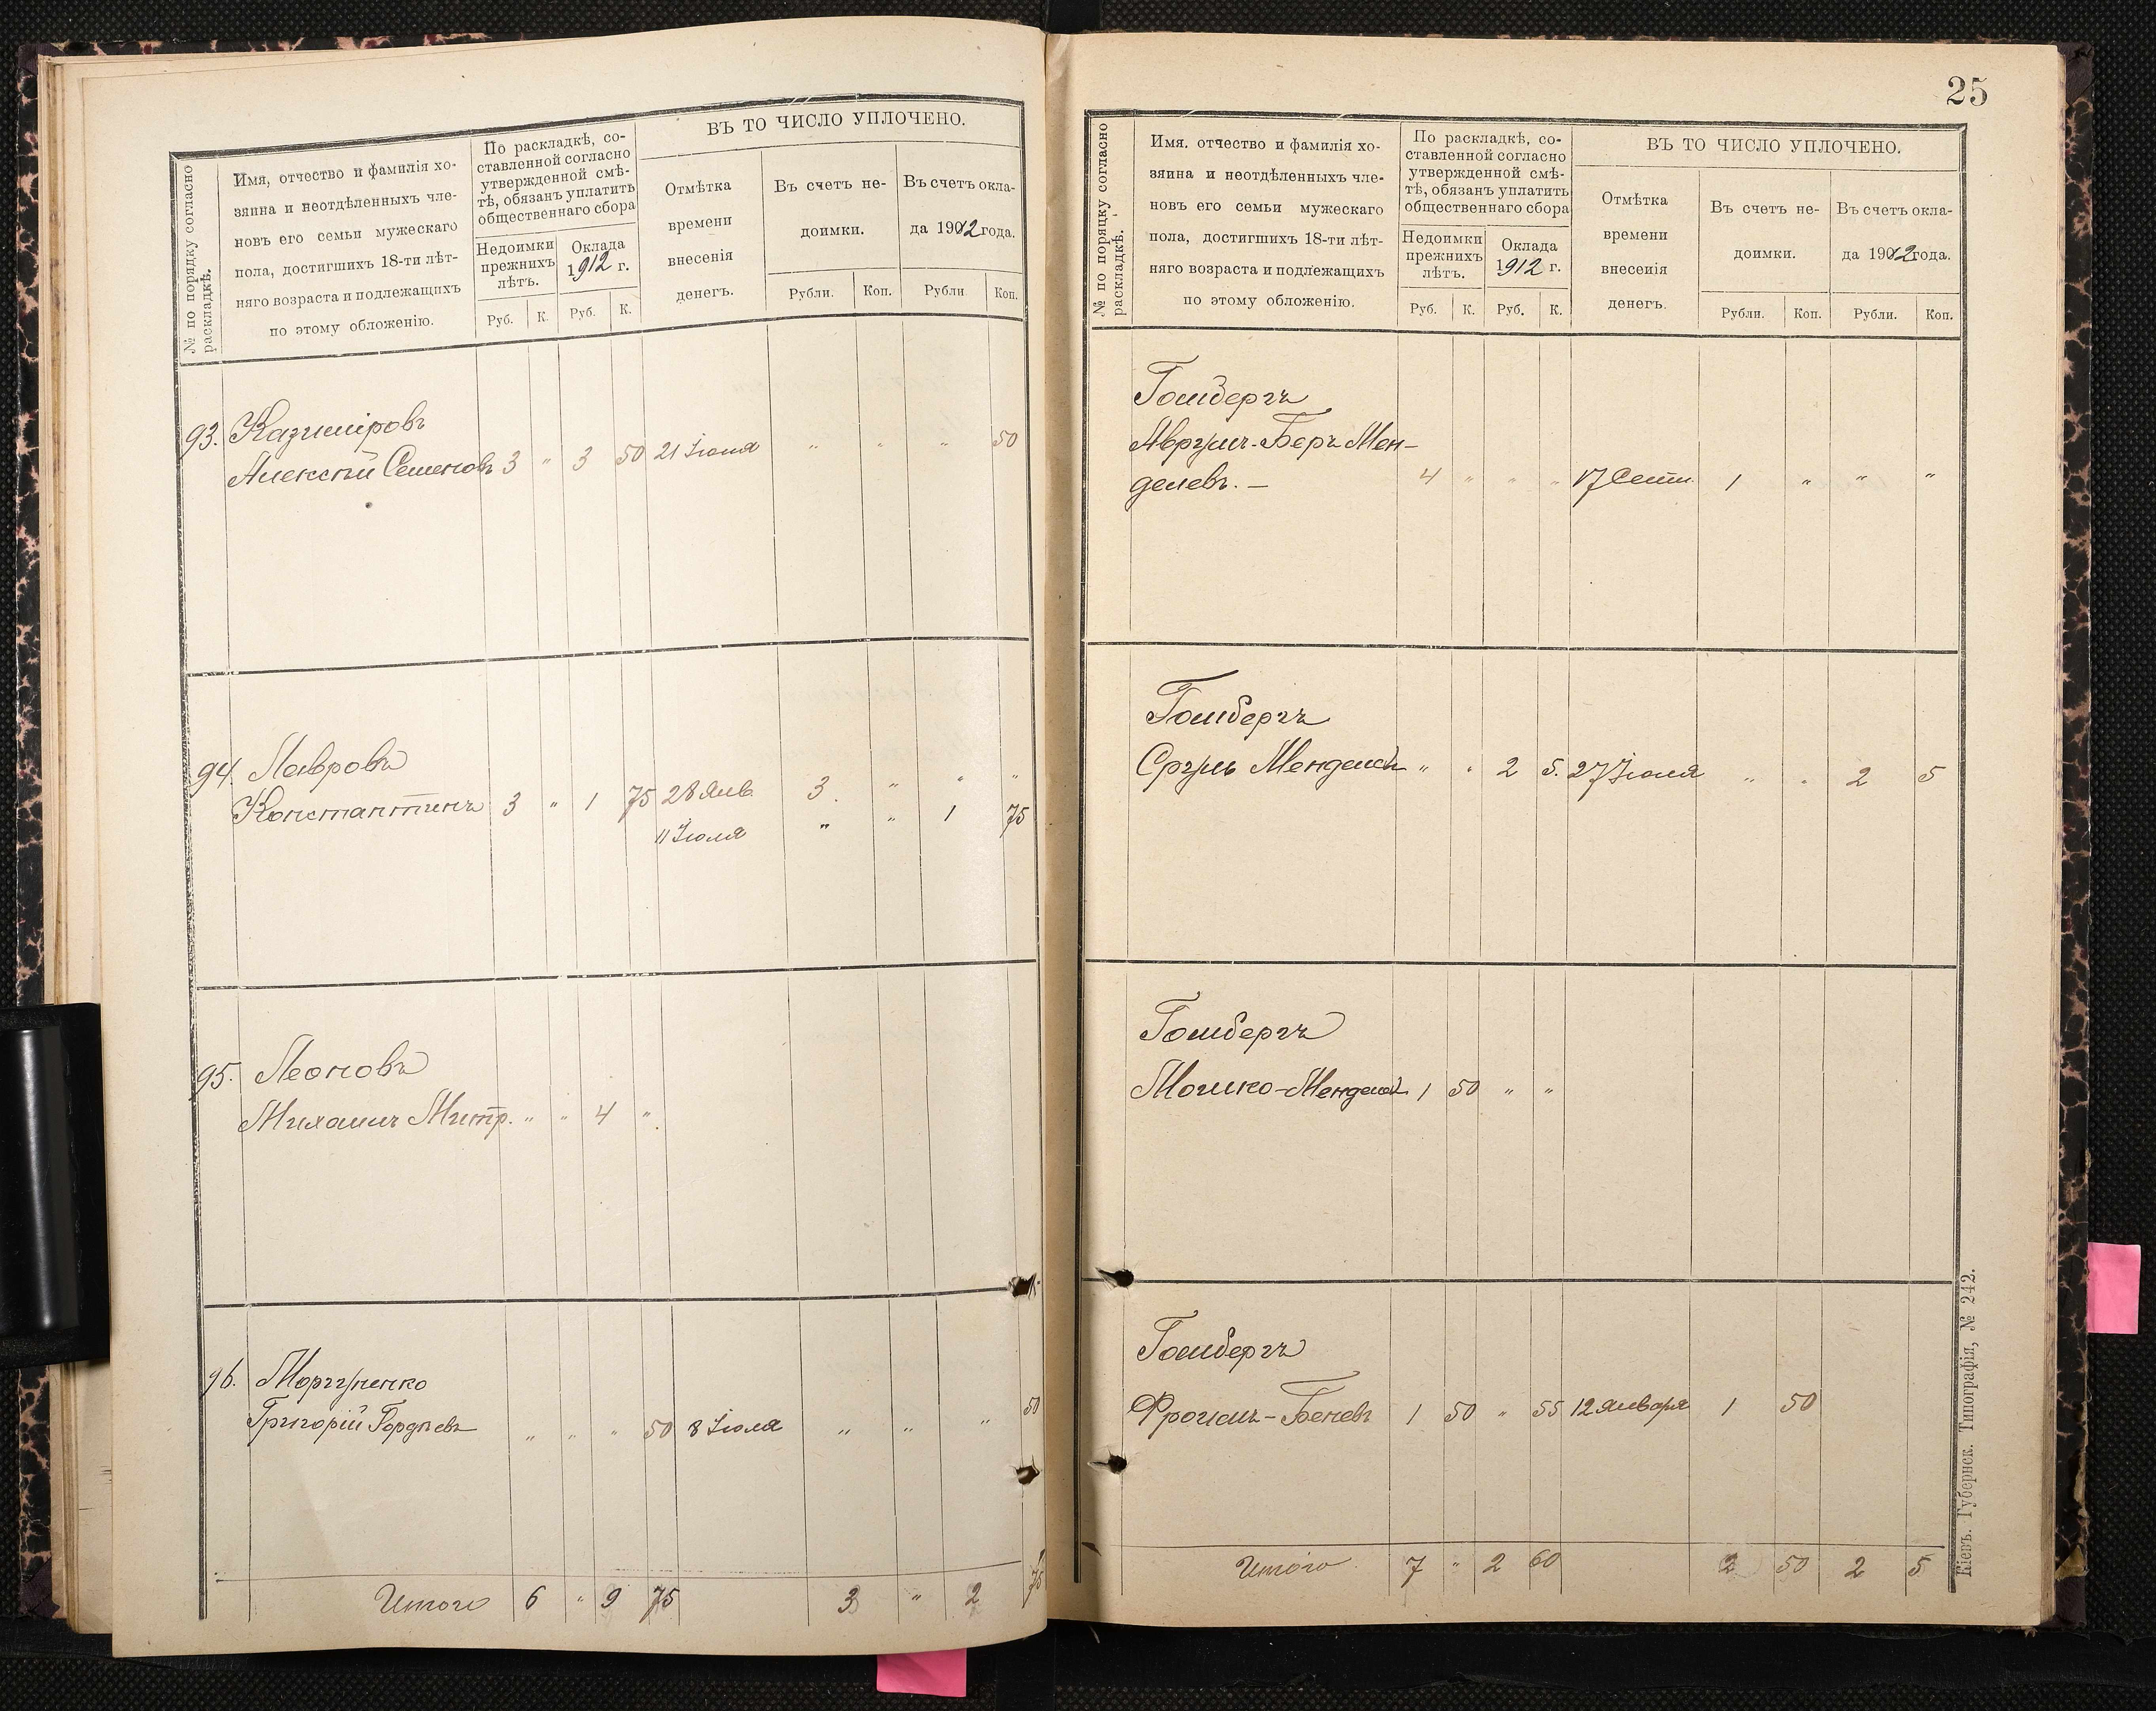 № по порядку согласно раскладкѣ.
Имя, отчество и фамилія хо-
зяина и неотдѣленныхъ чле-
новъ его семьи мужескаго
пола, достигшихъ 18-ти лѣт-
няго возраста и подлежащихъ
по этому обложенію.
По раскладкѣ, со-
ставленной согласно
утвержденной смѣ-
тѣ, обязанъ уплатить
общественнаго сбора
Недоимки
прежнихъ
лѣтъ.
Оклада
1912 г.
Руб. К. Руб. К.
ВЪ ТО ЧИСЛО УПЛОЧЕНО.
Отмѣтка
времени
внесенія
денегъ.
Въ счетъ не-
доимки.
Въ счетъ окла-
да 1912 года.
Рубли. Коп. Рубли Коп.
93. Казиміровъ
Алексѣй Семеновъ 3 " 3 50 21 Іюня " " " 50
94. Лавровъ
Константинъ 3 " 1 75 28 Янв. 3. " " "
11 Іюля " " 1 75
95. Леоновъ
Михаилъ Митр. " " 4 "
96. Моргуненко
Григорій Гордѣевъ " " " 50 8 Іюля " " " 50
Итого 6 " 9 75 3 " 2 75
25
№ по порядку согласно раскладкѣ.
Имя. отчество и фамилія хо-
зяина и неотдѣленныхъ чле-
новъ его семьи мужескаго
пола, достигшихъ 18-ти лѣт-
няго возраста и подлежащихъ
по этому обложенію.
По раскладкѣ, со-
ставленной согласно
утвержденной смѣ-
тѣ, обязанъ уплатить
общественнаго сбора
Недоимки
прежнихъ
лѣтъ.
Оклада
1912 г.
Руб. К. Руб. К.
ВЪ ТО ЧИСЛО УПЛОЧЕНО.
Отмѣтка
времени
внесенія
денегъ.
Въ счетъ не-
доимки.
Въ счетъ окла-
да 1912 года.
Рубли. Коп. Рубли. Коп.
Гомбергъ
Аврумъ-Беръ Мен-
делевъ. — 4 " " " 17 Сент. 1 " " "
Гомбергъ
Сруль Менделев " " 2 5. 27 Іюля " " 2 5
Гомбергъ
Мошко-Менделев 1 50 " "
Гомбергъ
Фроимъ-Беневъ 1 50 " 55 12 Января 1 50
Итого 7 " 2 60 2 50 2 5
Кіевъ. Губернск. Типографія, № 242.